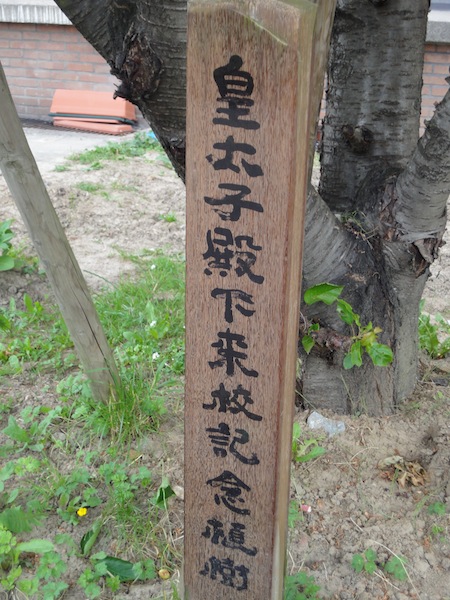 皇太子殿下来校記念植樹